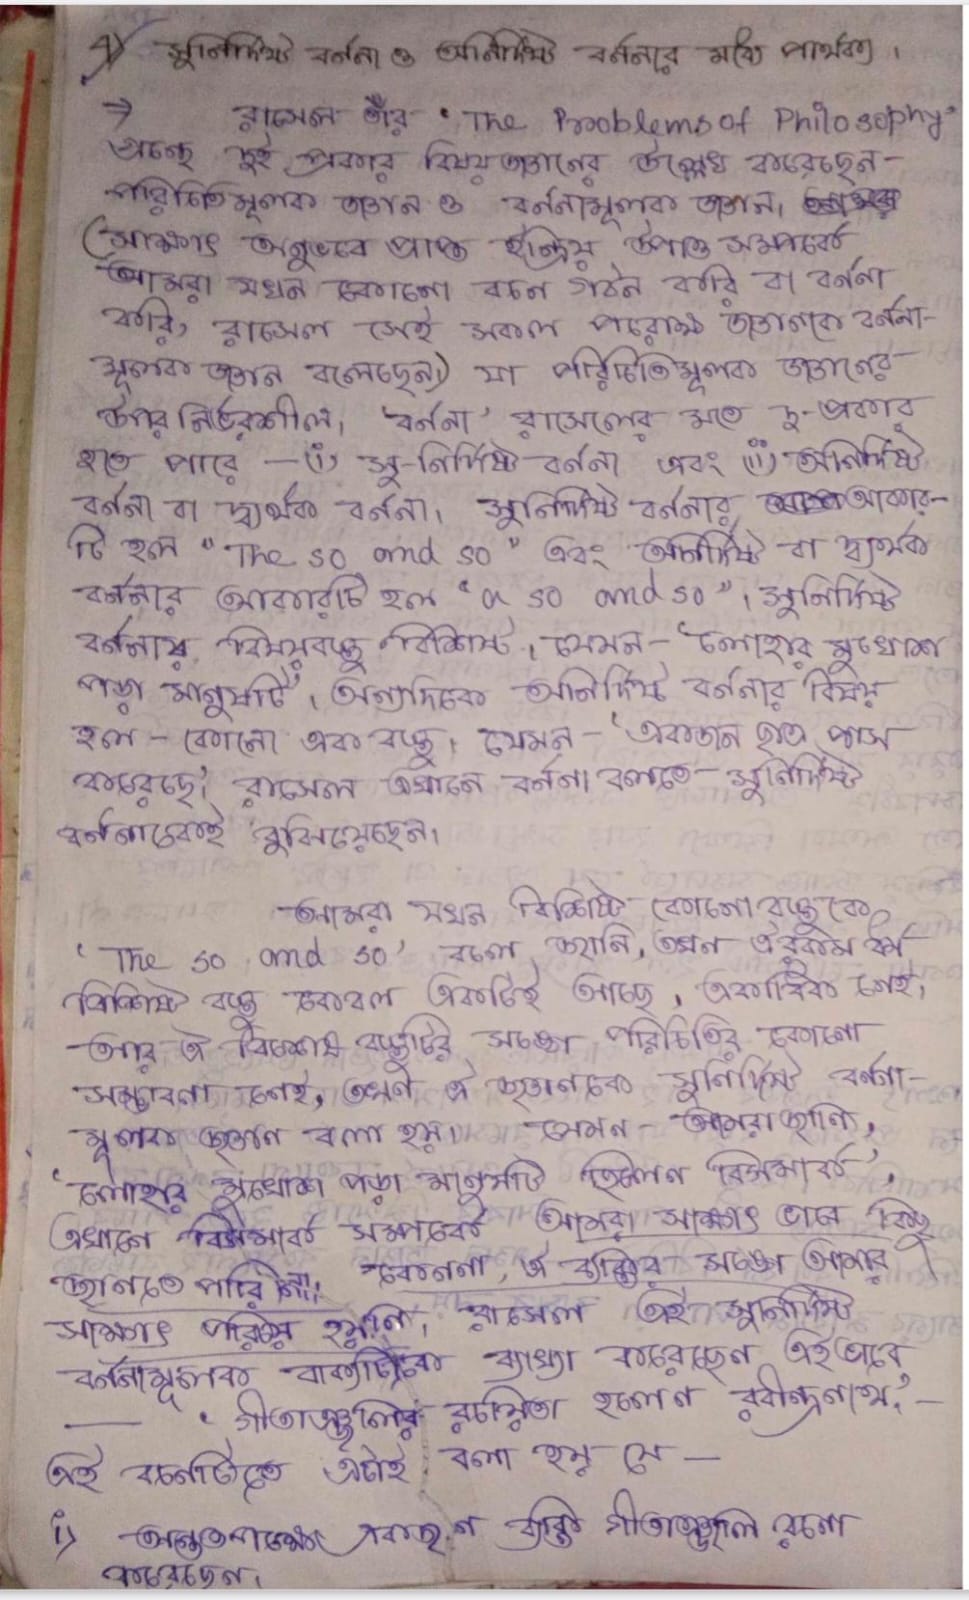 ৭) সুনির্দিষ্ট বর্ননা ও অনির্দিষ্ট বর্ননার মধ্যে পার্থক্য।
→ রাসেল তাঁর 'The Problems of Philosophy'
গ্রন্থে দুই প্রকার বিষয় জ্ঞানের উল্লেখ করেছেন-
পরিচিতিমূলক জ্ঞান ও বর্ননামূলক জ্ঞান।
(সাক্ষাৎ অনুভবে প্রাপ্ত ইন্দ্রিয় উপাত্ত সম্পর্কে
আমরা যখন কোনো বচন গঠন করি বা বর্ননা
করি, রাসেল সেই সকল পরোক্ষ জ্ঞানকে বর্ননা-
মূলক জ্ঞান বলেছেন) যা পরিচিতিমূলক জ্ঞানের
উপর নির্ভরশীল। 'বর্ননা' রাসেলের মতে দু-প্রকার
হতে পারে - (i) সু-নির্দিষ্ট বর্ননা এবং (ii) অনির্দিষ্ট
বর্ননা বা দ্ব্যর্থক বর্ননা। সুনির্দিষ্ট বর্ননার আকার-
টি হল "The so and so" এবং অনির্দিষ্ট বা দ্ব্যর্থক
বর্ননার আকারটি হল "a so and so"। সুনির্দিষ্ট
বর্ননায় বিষয়বস্তু বিশিষ্ট। যেমন- 'লোহার মুখোশ
পড়া মানুষটি'। অন্যদিকে অনির্দিষ্ট বর্ননার বিষয়
হল - কোনো এক বস্তু। যেমন- 'একজন ছাত্র পাস
করেছে'। রাসেল এখানে বর্ননা বলতে সুনির্দিষ্ট
বর্ননাকেই বুঝিয়েছেন।
আমরা যখন বিশিষ্ট কোনো বস্তুকে
'The so and so' বলে জানি, তখন ঐরকম ধর্ম
বিশিষ্ট বস্তু কেবল একটিই আছে, একাধিক নেই।
আর ঐ বিশেষ বস্তুটির সঙ্গে পরিচিতির কোনো
সম্ভাবনা নেই, তখন ঐ জ্ঞানকে সুনির্দিষ্ট বর্ননা-
মূলক জ্ঞান বলা হয়। যেমন- আমরা জানি,
'লোহার মুখোশ পড়া মানুষটি ছিলেন বিসমার্ক',
এখানে বিসমার্ক সম্পর্কে আমরা সাক্ষাৎ ভাবে কিছু
জানতে পারি না। কেননা, ঐ ব্যক্তির সঙ্গে আমার
সাক্ষাৎ পরিচয় হয়নি। রাসেল এই সুনির্দিষ্ট
বর্ননামূলক বাক্যটিকে ব্যাখ্যা করেছেন এইভাবে,
— 'গীতাঞ্জলির রচয়িতা হলেন রবীন্দ্রনাথ'-
এই বচনটিতে এটাই বলা হয় যে —
i) অন্ততপক্ষে একজন ব্যক্তি গীতাঞ্জলি রচনা
করেছেন।